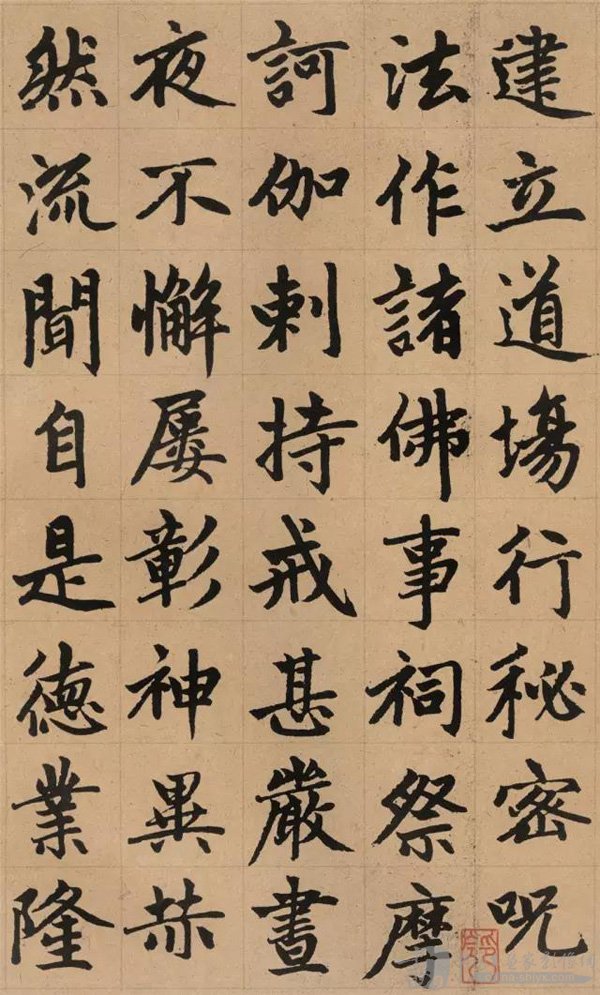 建立道場行秘密呪
法作諸佛事祠祭摩
訶伽剌持戒甚嚴晝
夜不懈屢彰神異赫
然流聞自是德業隆